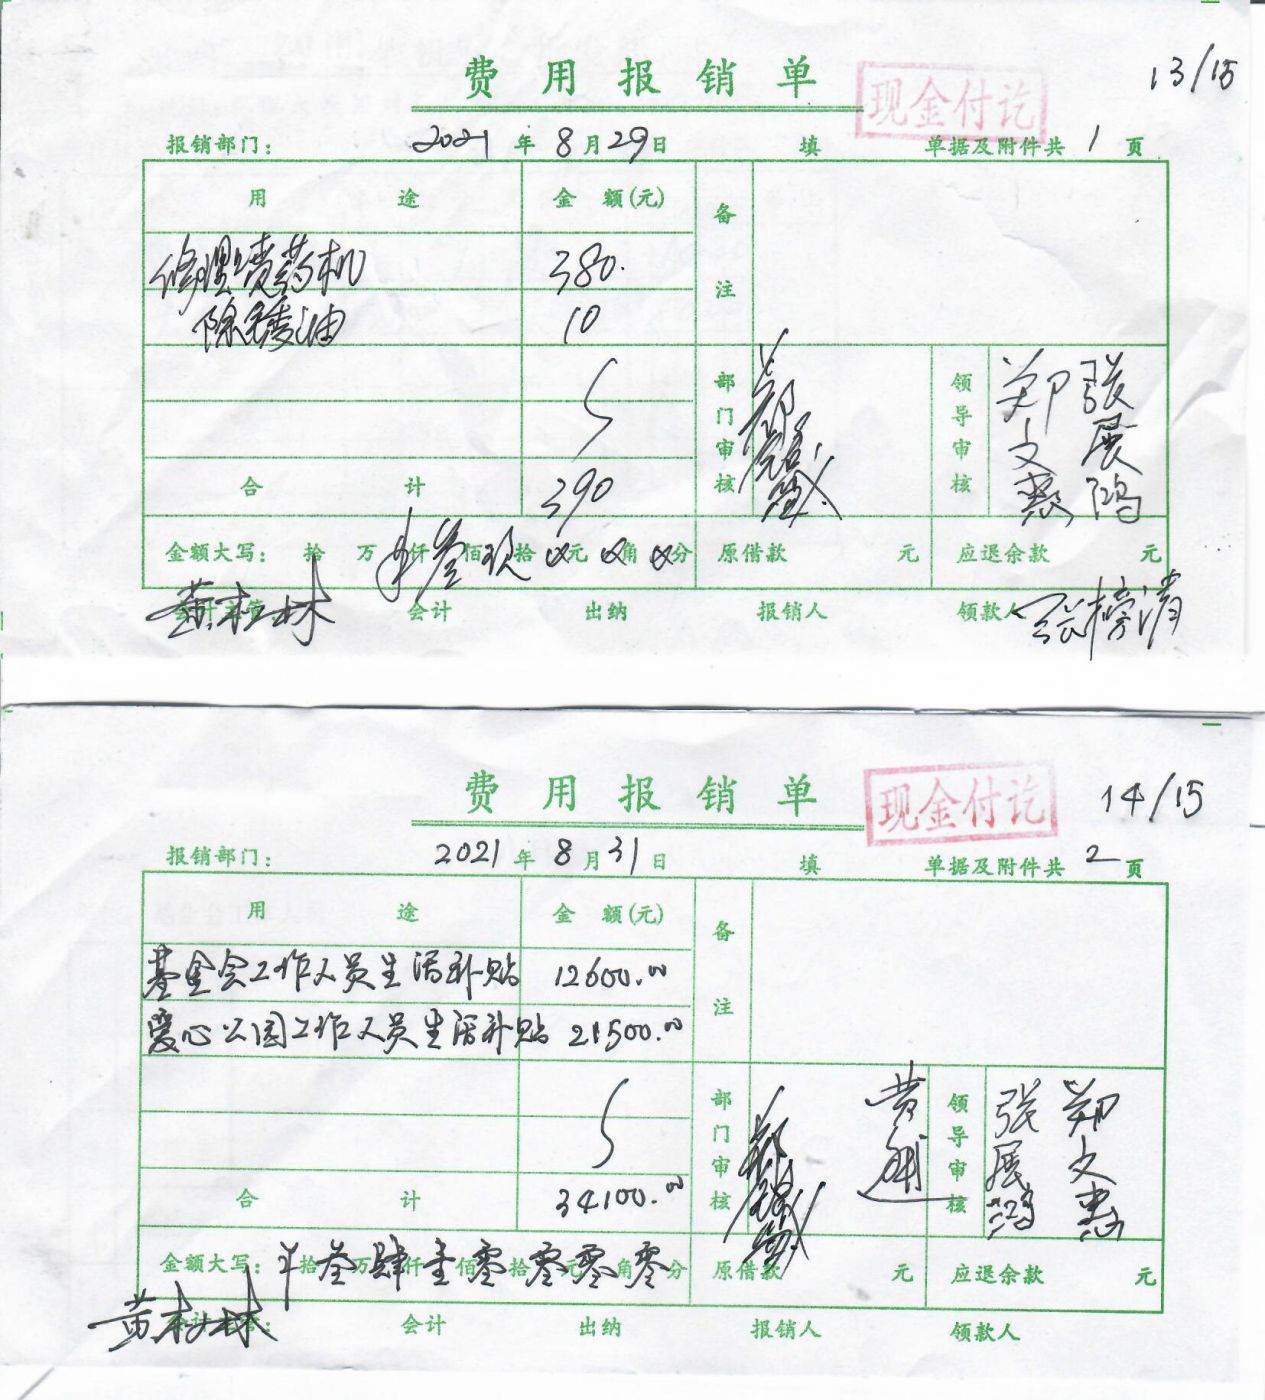 费用报销单
现金付讫
13/15
报销部门： 2021 年 8 月 29 日 填 单据及附件共 1 页
用途 金额(元) 备注
修理喷药机 380.
除锈油 10
部门审核 领导审核 郑文惠 张展鸿
合计 390
金额大写： 拾 万 仟 叁 佰 玖 拾 元 角 分 原借款 元 应退余款 元
黄树林 会计 出纳 报销人 领款人 张榜清
费用报销单
现金付讫
14/15
报销部门： 2021 年 8 月 31 日 填 单据及附件共 2 页
用途 金额(元) 备注
基金会工作人员生活补贴 12600.00
爱心公园工作人员生活补贴 21500.00
部门审核 领导审核 张展鸿 郑文惠
合计 34100.00
金额大写： 拾 叁 万 肆 仟 壹 佰 零 拾 零 元 零 角 零 分 原借款 元 应退余款 元
黄树林 会计 出纳 报销人 领款人